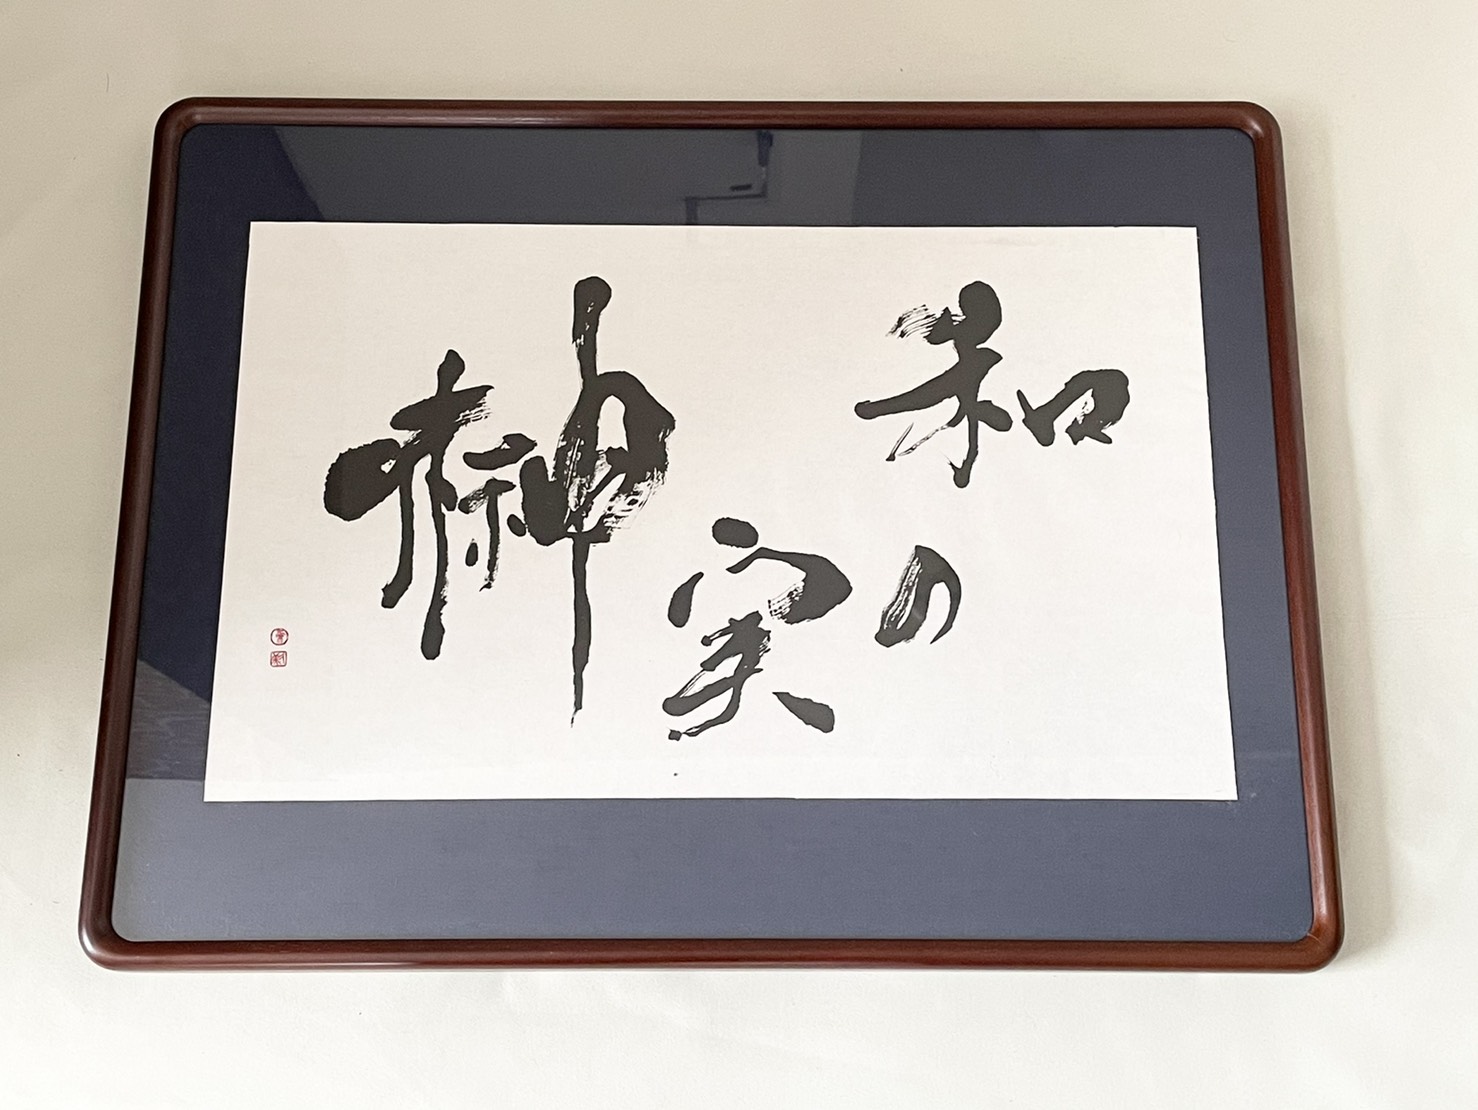 和の実
榊